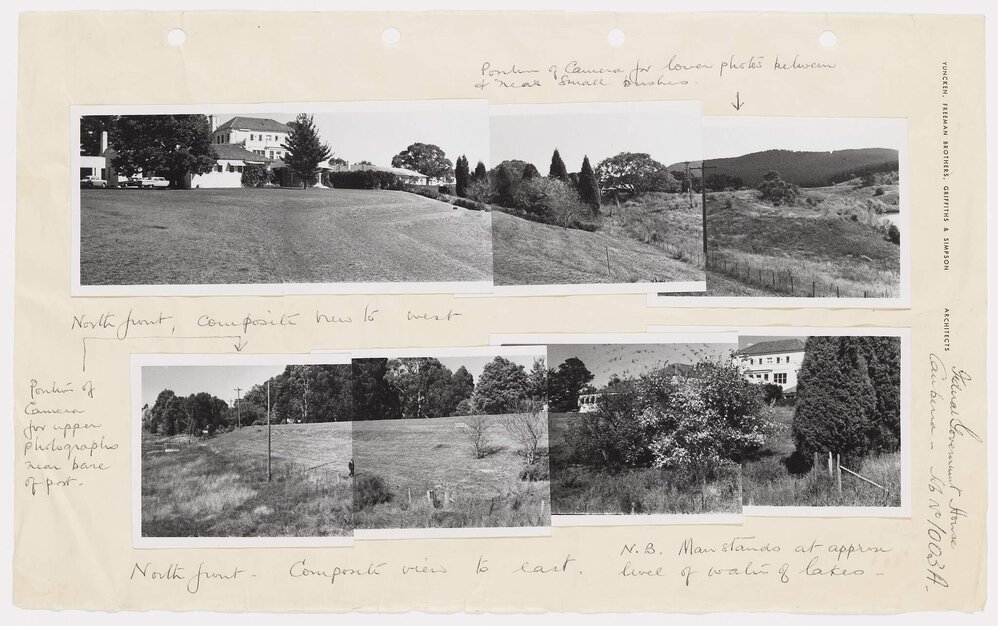 Position of Camera for lower photos between
& near small bushes.
North front, Composite view to west
Position of
Camera
for upper
photographs
near base
of post.
North front - Composite view to east.
N.B. Man stands at approx
level of water of lakes -
YUNCKEN, FREEMAN BROTHERS, GRIFFITHS & SIMPSON ARCHITECTS
Federal Government House
Canberra - No 1003A -